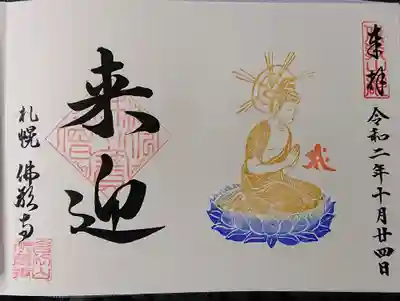 奉拝
令和二年十月廿四日
来迎
札幌 佛願寺